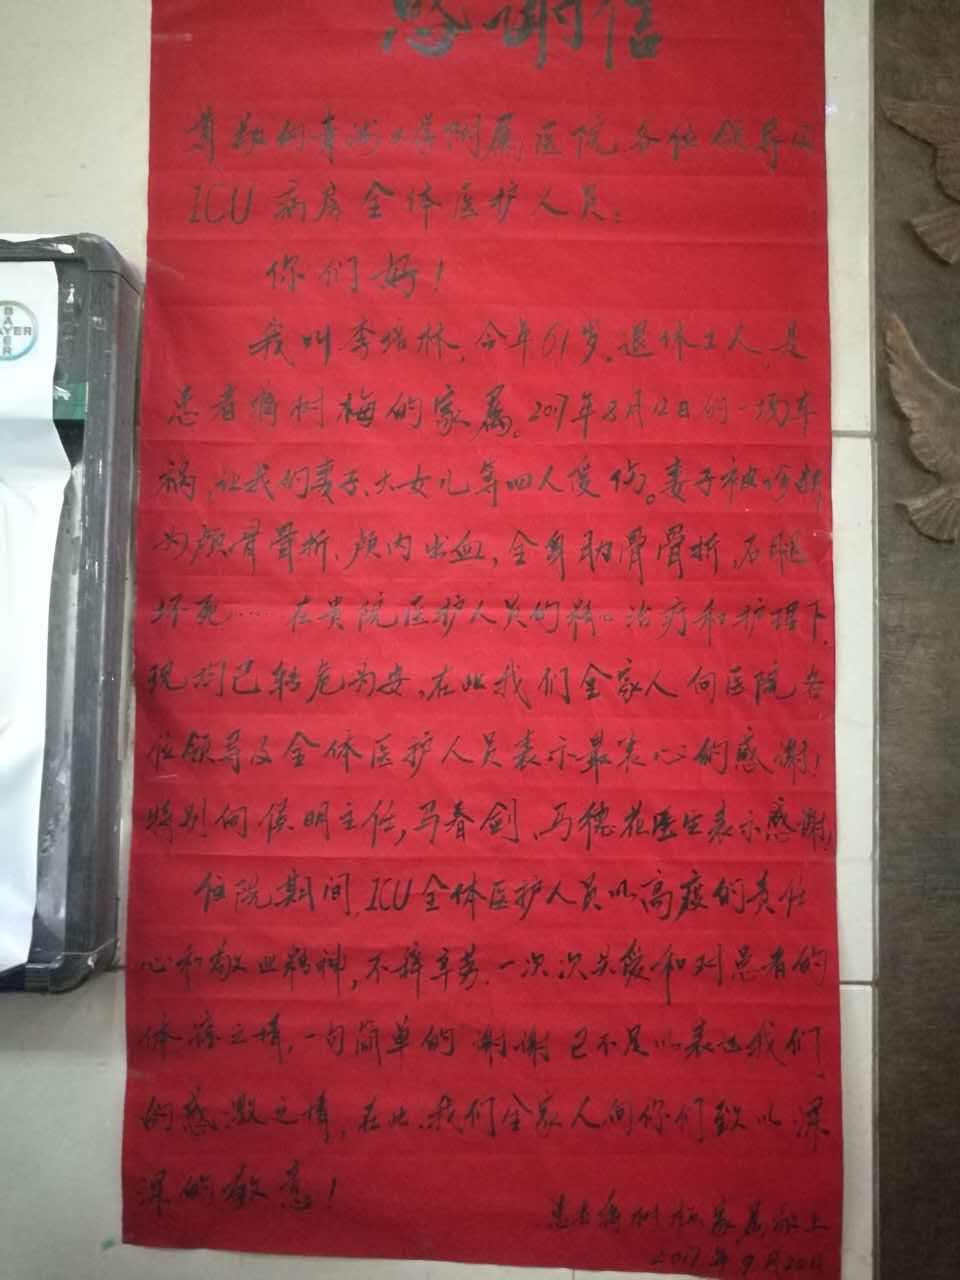 感谢信
尊敬的青海大学附属医院各位领导及
ICU病房全体医护人员:
你们好!
我叫李培林,今年61岁,退休工人,是
患者 树梅的家属。2017年8月12日的一场车
祸,让我的妻子、大女儿等四人受伤。妻子被诊断
为颅骨骨折、颅内出血,全身肋骨骨折,右腿
坏死……在贵院医护人员的精心治疗和护理下,
现均已转危为安,在此我们全家人向医院各
位领导及全体医护人员表示最衷心的感谢!
特别向侯明主任,马春剑、马德花医生表示感谢,
住院期间,ICU全体医护人员以高度的责任
心和敬业精神,不辞辛劳,一次次 和对患者的
体 之情,一句简单的谢谢已不足以表达我们
的感激之情,在此,我们全家人向你们致以深
深的敬意!
患者 树梅家属敬上
2017年9月20日
BAYER
BAYER